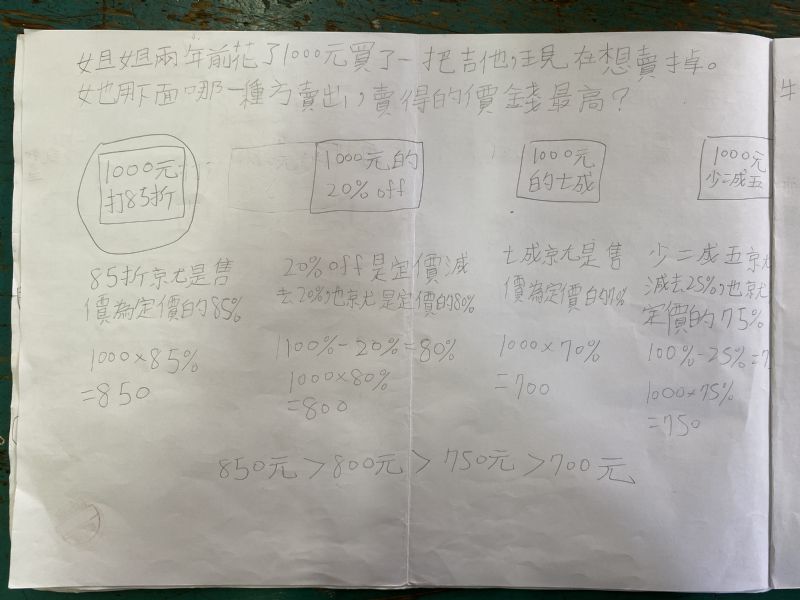 姐姐兩年前花了1000元買了一把吉他,現在想賣掉。
她用下面哪一種方賣出,賣得的價錢最高?
1000元
打85折
1000元的
20% off
1000元
的七成
1000元
少二成五
85折就是售
價為定價的85%
1000×85%
=850
20%off是定價減
去20%,也就是定價的80%
100%-20%=80%
1000×80%
=800
七成就是售
價為定價的70%
1000×70%
=700
少二成五就
減去25%,也就
定價的75%
100%-25%=7
1000×75%
=750
850元>800元>750元>700元